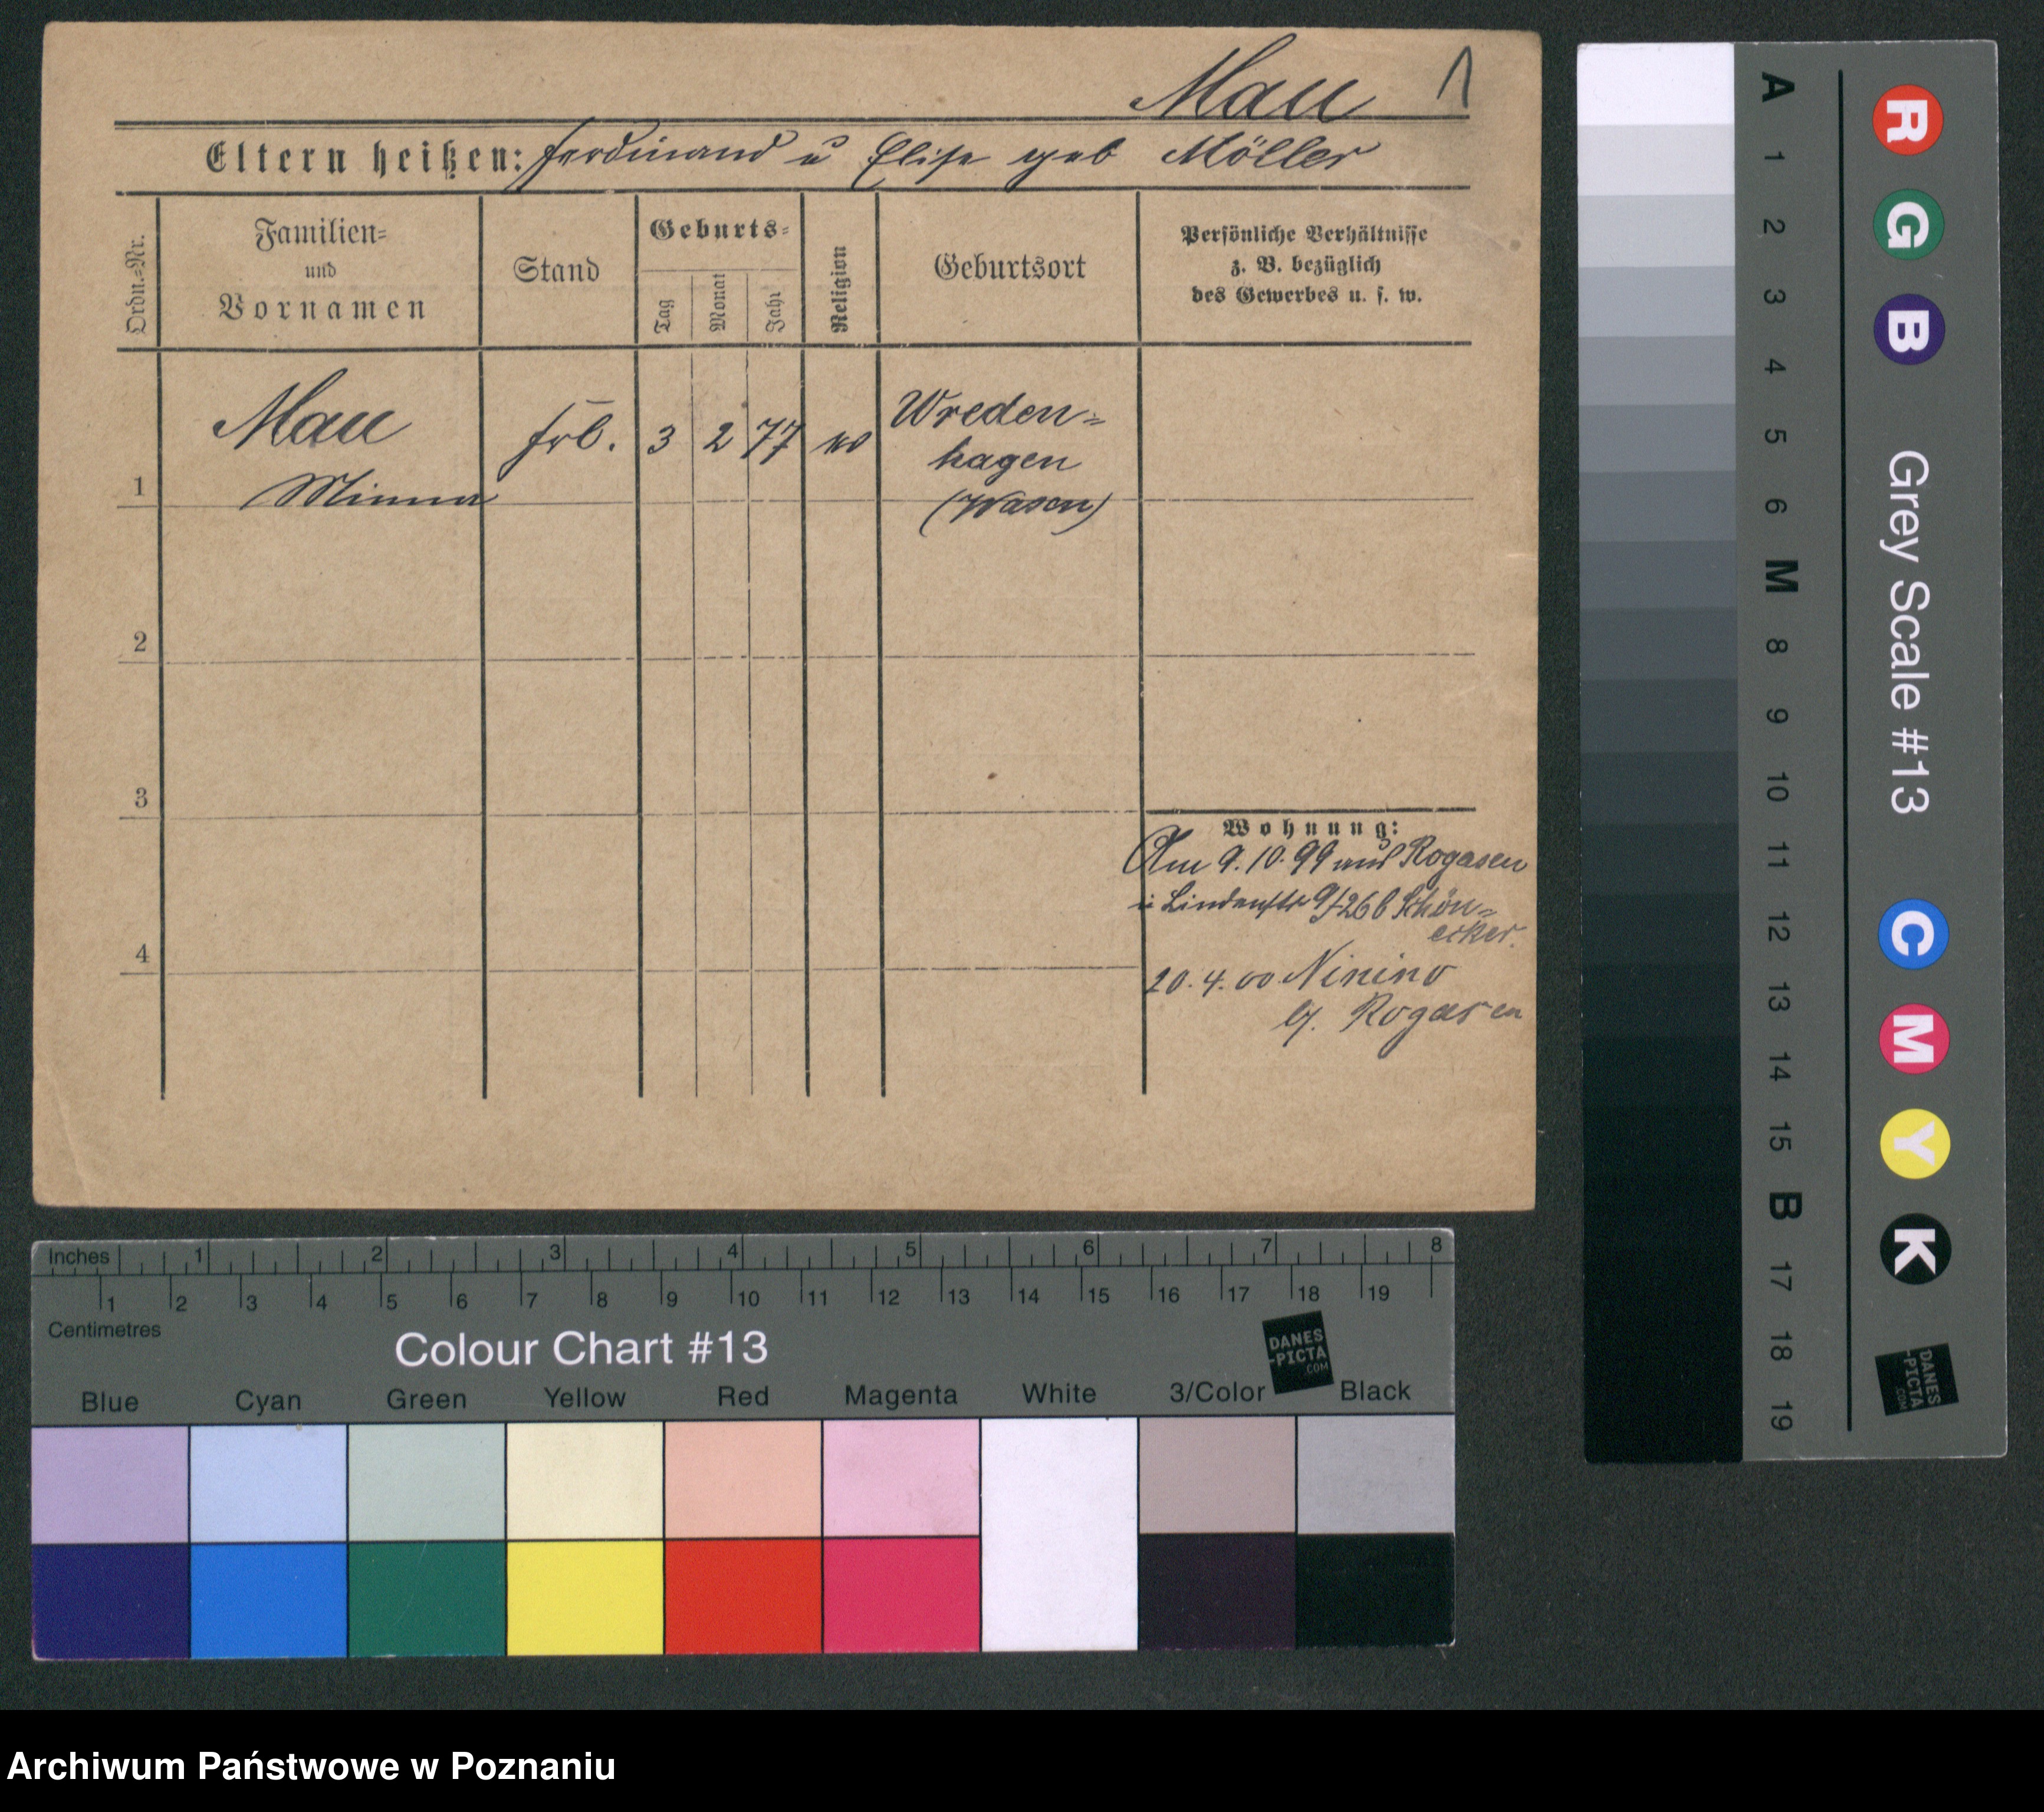 Mau 1
Eltern heißen: Ferdinand u Elise geb Möller
Ordn.=Nr.
Familien=
und
Vornamen
Stand
Geburts=
Tag
Monat
Jahr
Religion
Geburtsort
Persönliche Verhältnisse
z. B. bezüglich
des Gewerbes u. s. w.
1
Mau
Minna
3 2 77
Wreden=
hagen
(Waren)
2
3
4
Wohnung:
Am 9.10.99 aus Rogasen
Lindenstr 9/26 b Schön=
ecker.
20.4.00 Ninino
b/. Rogasen
Inches 1 2 3 4 5 6 7 8
1 2 3 4 5 6 7 8 9 10 11 12 13 14 15 16 17 18 19
Centimetres
Colour Chart #13
DANES
-PICTA
.COM
Blue Cyan Green Yellow Red Magenta White 3/Color Black
A 1 2 3 4 5 6 M 8 9 10 11 12 13 14 15 B 17 18 19
R G B
Grey Scale #13
C M Y K
DANES
-PICTA
.COM
Archiwum Państwowe w Poznaniu